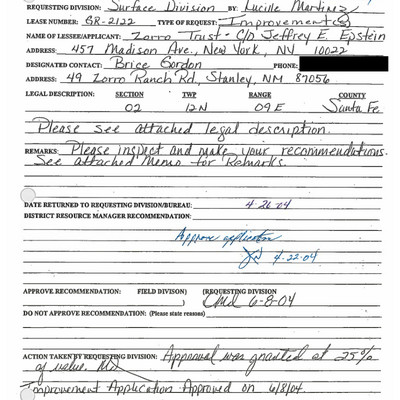 REQUESTING DIVISION: Surface Division BY: Lucille Martinez
LEASE NUMBER: GR-2122 TYPE OF REQUEST: Improvement(s)
NAME OF LESSEE/APPLICANT: Zorro Trust - C/o Jeffrey E. Epstein
ADDRESS: 457 Madison Ave., New York, NY 10022
DESIGNATED CONTACT: Brice Gordon PHONE:
ADDRESS: 49 Zorro Ranch Rd, Stanley, NM 87056
LEGAL DESCRIPTION: SECTION TWP RANGE COUNTY
02 12N 09E Santa Fe
Please see attached legal description.
REMARKS: Please inspect and make your recommendations.
See attached Memo for Remarks.
DATE RETURNED TO REQUESTING DIVISION/BUREAU: 4-26-04
DISTRICT RESOURCE MANAGER RECOMMENDATION:
Approve application
4-22-04
APPROVE RECOMMENDATION: FIELD DIVISION) (REQUESTING DIVISION
6-8-04
DO NOT APPROVE RECOMMENDATION: (Please state reasons)
ACTION TAKEN BY REQUESTING DIVISION: Approval was granted at 25%
of value.
Improvement Application Approved on 6/8/04.